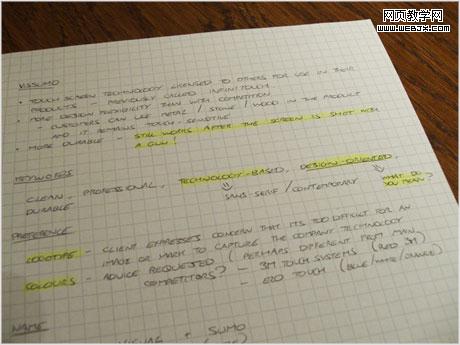 网页教学网
www.webjx.com
VISSUMO
• TOUCH SCREEN TECHNOLOGY LICENSED TO OTHERS FOR USE IN THEIR
PRODUCTS - PREVIOUSLY CALLED INFINITOUCH
• MORE DESIGN FLEXIBILITY THAN WITH COMPETITION
- CUSTOMERS CAN USE METAL / STONE / WOOD IN THE PRODUCT
AND IT REMAINS TOUCH-SENSITIVE
• MORE DURABLE - STILL WORKS AFTER THE SCREEN IS SHOT WITH
A GUN!
KEYWORDS
CLEAN, PROFESSIONAL, TECHNOLOGY-BASED, DESIGN-ORIENTED,
DURABLE
SANS-SERIF / CONTEMPORARY
WHAT DO
YOU MEAN?
PREFERENCE
LOGOTYPE - CLIENT EXPRESSES CONCERN THAT IT'S TOO DIFFICULT FOR AN
IMAGE OR MARK TO CAPTURE THE COMPANY TECHNOLOGY
COLOURS - ADVICE REQUESTED (PERHAPS DIFFERENT FROM MAIN
COMPETITORS? - 3M TOUCH SYSTEMS (RED 3M)
- ELO TOUCH (BLUE/WHITE/ORANGE)
NAME
VISUAL + SUMO